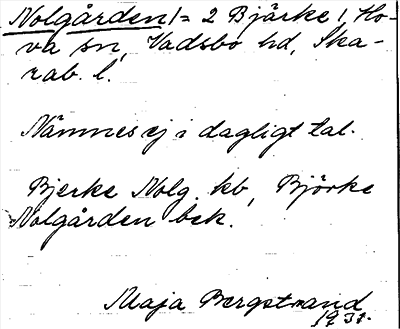 Nolgården (= 2 Bjärke), Ho-
va sn, Vadsbo hd, Ska-
rab. l.
Nämnes ej i dagligt tal.
Bjerke Nolg. kb, Björke
Nolgården bek.
Maja Bergstrand
1931.